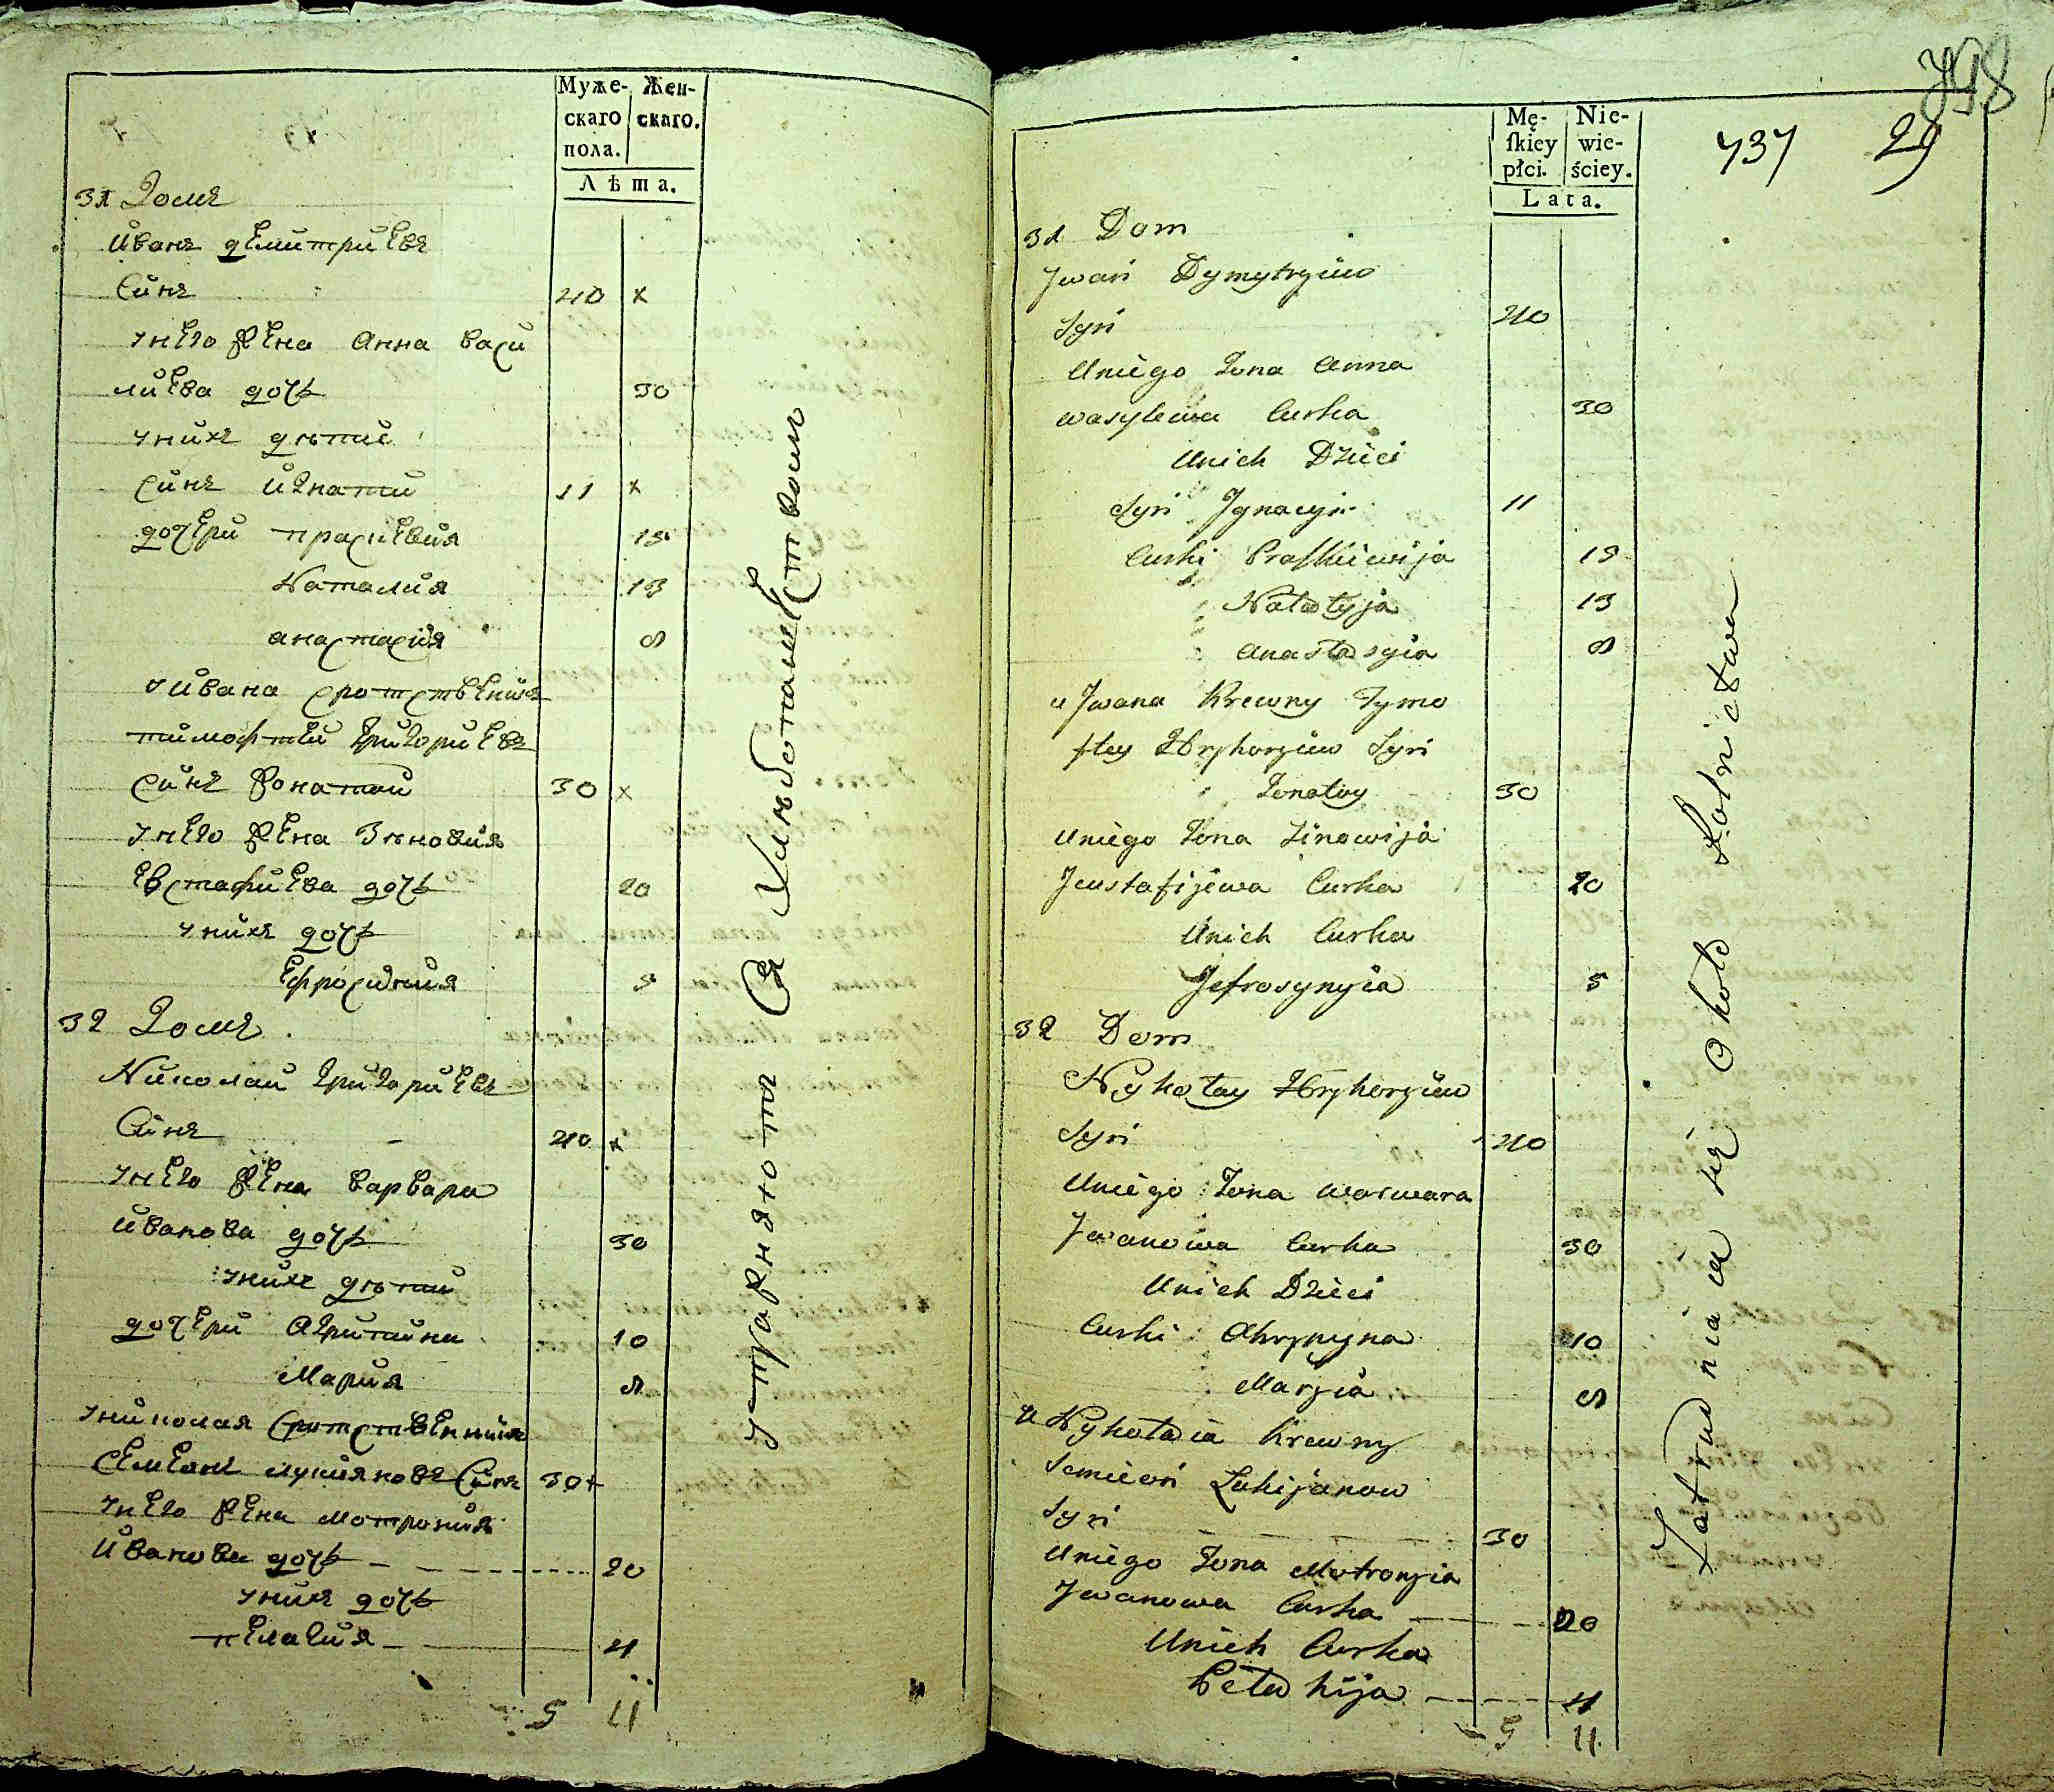 Муже-
скаго
пола.
Жен-
скаго.
Лѣта.
31 Домъ
Иванъ Демитриевъ
Синъ 40 x
Унего жена Анна Васи
лиева дочь 30
Унихъ дѣти
Синъ Игнатий 11 x
дочери Прасиевия 15
Наталия 13
Анастасия 8
У Ивана сротственикъ
Тимофтей Григориевъ
Синъ Жонатий 30 x
Унего жена Зѣновия
Евстафиева дочь 20
Унихъ дочь
Ефросиния 5
32 Домъ
Николай Григориевъ
Синъ 40 x
Унего жена Варвара
Иванова дочь 30
Унихъ дѣти
дочери Агрипина 10
Мария 8
Униколая сротственникъ
Семеонъ Лукияновъ Синъ 30 x
Унего жена Мотрония
Иванова дочь 20
Унихъ дочь
Пелагия 4
5 11
упражняются Хлѣбопашеством
Mę-
ſkiey
płci.
Nie-
wie-
ściey.
Lata.
737 29
31 Dom
Jwan Dymytryiew
Syn 40
Uniego Zona Anna
Wasylewa Curka 30
Unich Dzieci
Syn Jgnacyi 11
Curki Praſkiewija 15
Natalyja 13
Anastasyia 8
u Jwana Krewny Tymo
ftey Hryhoryiew Syn
Zonatny 30
Uniego Zona Zinowija
Jeustafijewa Curka 20
Unich Curka
Jefrosynyia 5
32 Dom
Nykołay Hryhoryiew
Syn 40
Uniego Zona Warwara
Jwanowa Curka 30
Unich Dzieci
Curki Ahrypyna 10
Maryia 8
u Nykołaia Krewny
Semieon Łukijanow
Syn 30
Uniego Zona Motronyia
Jwanowa Curka 20
Unich Curka
Pelahija 4
5 11
Zatrudniaia się Około Rolnictwa